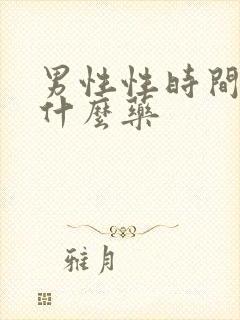 男性性時間
什麼藥
雅月